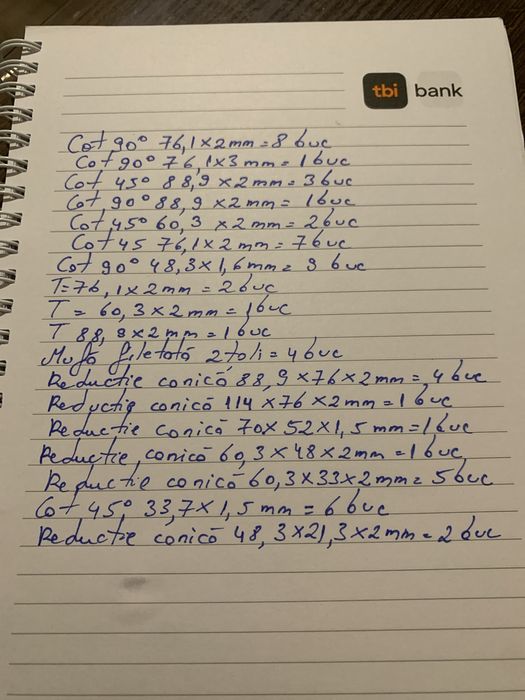 tbi bank
Cot 90° 76,1x2mm = 8 buc
Cot 90° 76,1x3mm = 1buc
Cot 45° 88,9 x2mm = 3buc
Cot 90° 88,9 x2mm = 1buc
Cot 45° 60,3 x2mm = 2buc
Cot 45 76,1x2mm = 7buc
Cot 90° 48,3x1,6mm = 9 buc
T=76,1x2mm = 2buc
T = 60,3x2mm = 1buc
T 88,9x2mm = 1buc
Mufă filetată 2 toli = 4buc
Reductie conică 88,9x76x2mm = 4buc
Reductie conică 114x76x2mm = 1buc
Reductie conică 70x52x1,5mm = 1buc
Reductie conică 60,3x48x2mm = 1buc
Reductie conică 60,3x33x2mm = 5buc
Cot 45° 33,7x1,5mm = 6buc
Reductie conică 48,3x21,3x2mm = 2buc